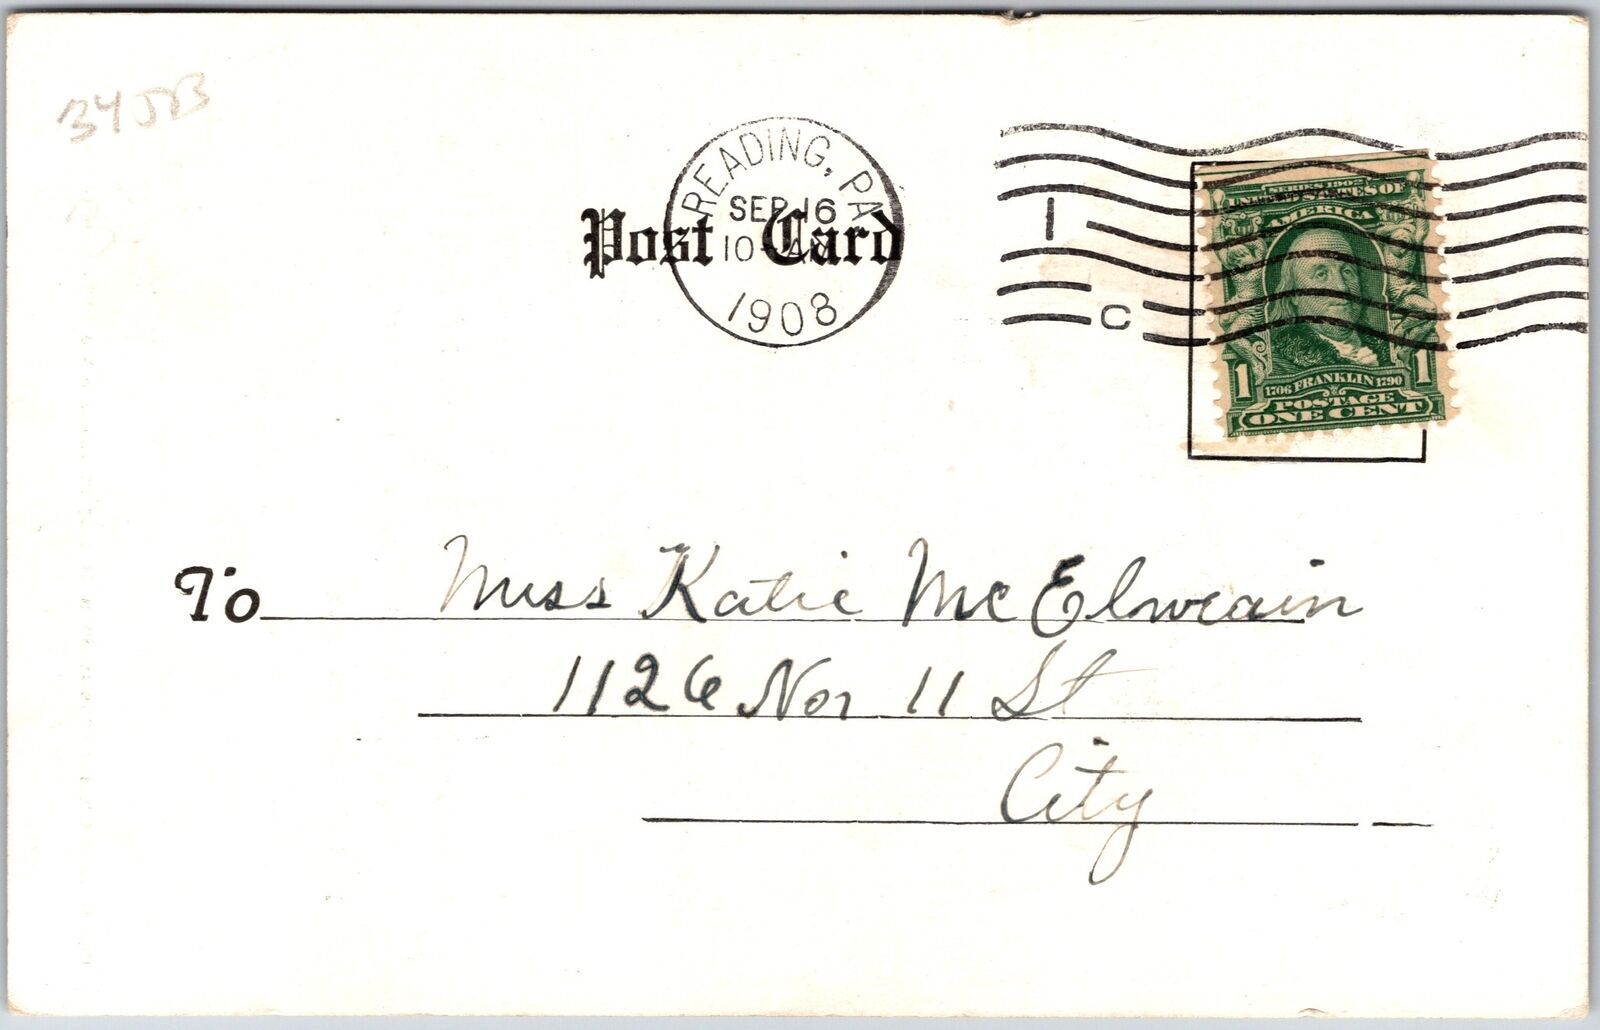 READING, PA
SEP 16
10 AM
1908
Post Card
1
C
SERIES 1902
UNITED STATES OF
AMERICA
1 1
1706 FRANKLIN 1790
POSTAGE
ONE CENT
To Miss Katie McElwain
1126 Nor 11 St
City